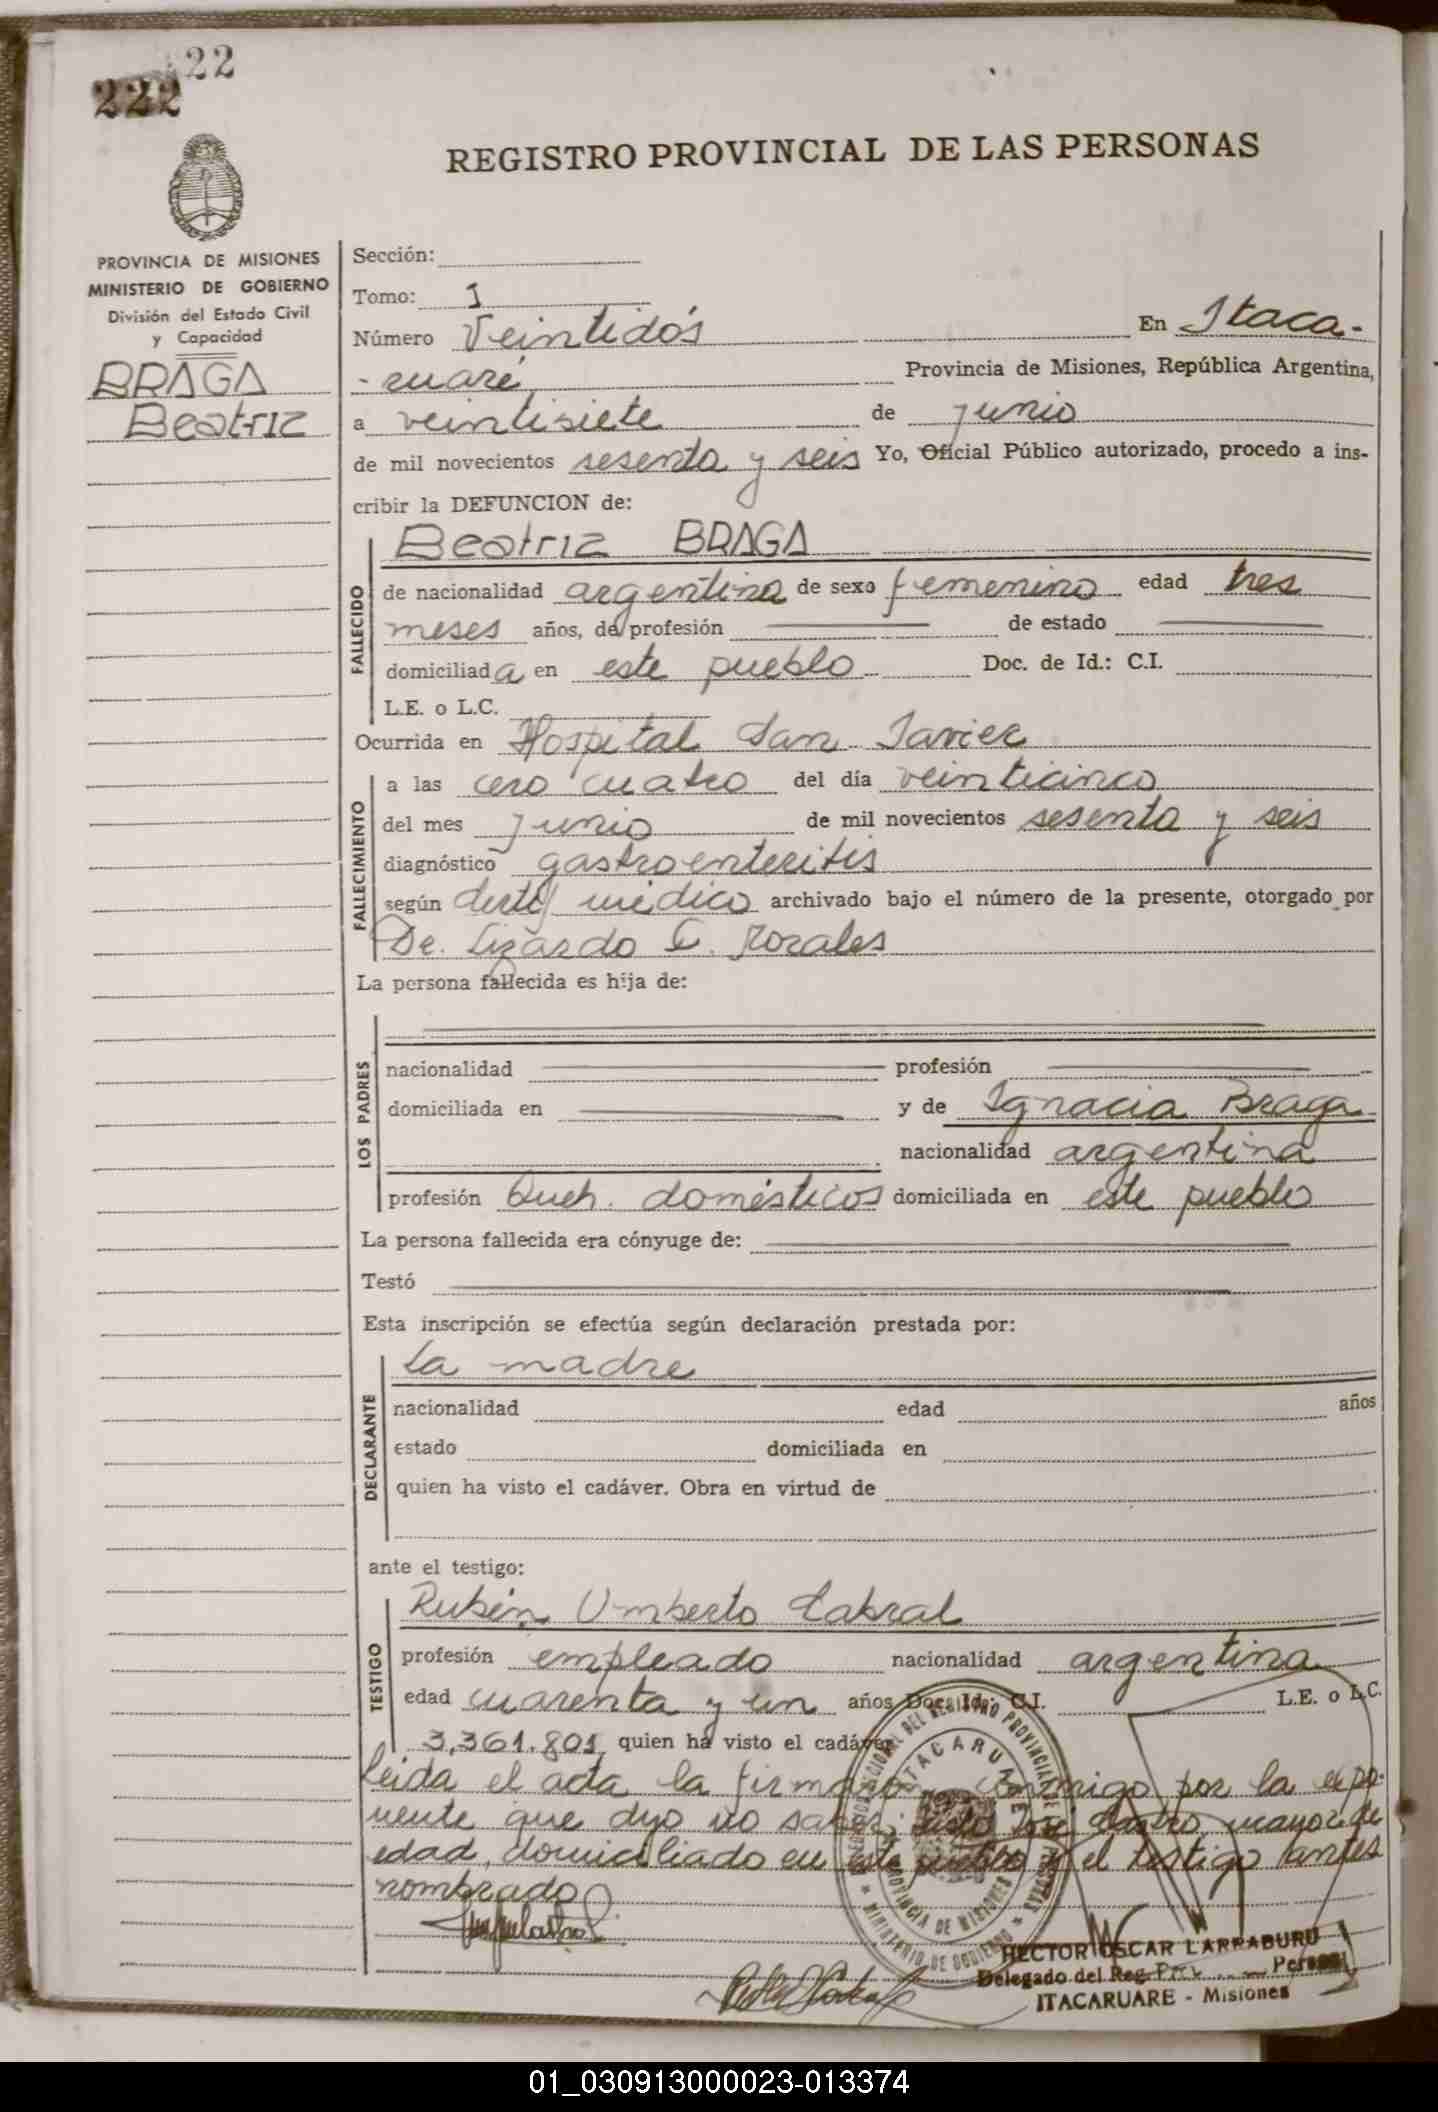 22
222
REGISTRO PROVINCIAL DE LAS PERSONAS
PROVINCIA DE MISIONES
MINISTERIO DE GOBIERNO
División del Estado Civil
y Capacidad
BRAGA
Beatriz
Sección:
Tomo: 1
Número Veintidós En Itaca-
-ruaré Provincia de Misiones, República Argentina,
a veintisiete de junio
de mil novecientos sesenta y seis Yo, Oficial Público autorizado, procedo a ins-
cribir la DEFUNCION de:
FALLECIDO
Beatriz BRAGA
de nacionalidad argentina de sexo femenino edad tres
meses años, de profesión de estado
domiciliada en este pueblo Doc. de Id.: C.I.
L.E. o L.C.
Ocurrida en Hospital San Javier
FALLECIMIENTO
a las cero cuatro del día veinticinco
del mes junio de mil novecientos sesenta y seis
diagnóstico gastroenteritis
según médico archivado bajo el número de la presente, otorgado por
Dr. Lizardo C.
La persona fallecida es hija de:
LOS PADRES
nacionalidad profesión
domiciliada en y de Ignacia Braga
nacionalidad argentina
profesión Queh. domésticos domiciliada en este pueblo
La persona fallecida era cónyuge de:
Testó
Esta inscripción se efectúa según declaración prestada por:
DECLARANTE
La madre
nacionalidad edad años
estado domiciliada en
quien ha visto el cadáver. Obra en virtud de
ante el testigo:
TESTIGO
Rubén Umberto Cabral
profesión empleado nacionalidad argentina
edad cuarenta y un años Doc. Id.: C.I. L.E. o L.C.
3,361.801 quien ha visto el cadáver
leida el acta la firma conmigo por la expo-
nente que dijo no saber, mayor de
edad, domiciliado en este pueblo y el testigo antes
nombrado
ITACARUARE
PROVINCIA DE MISIONES
MINISTERIO DE GOBIERNO
HECTOR OSCAR LARRABURU
Delegado del Reg.
ITACARUARE - Misiones
01_030913000023-013374